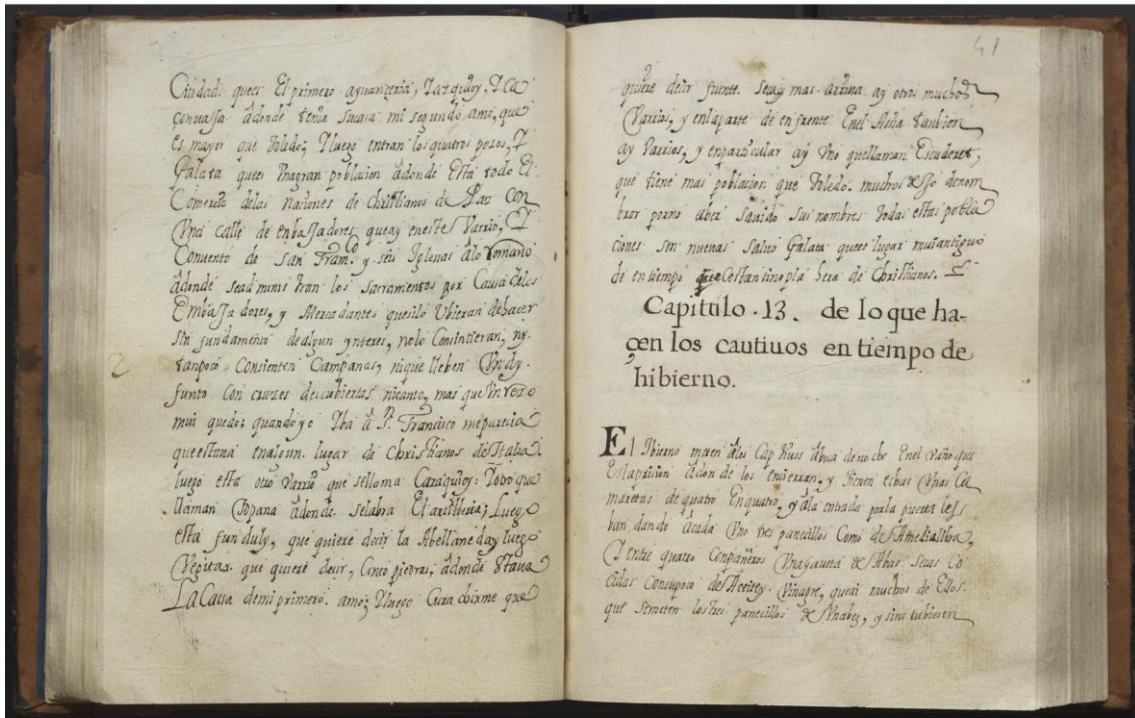 Ciudad. quees El primero ayuançeria, Tatquioy, Tea
çonuaja âdonde tenia Sucasa mi segundo amo, que
Es mayor que Toledo; Yluego entran los quatro pozos, Y
Galata quees Vnagran poblacion âdonde Está todo El
Comerçio delas naciones de christianos de Paz con
Vna calle de enbaJadores queay eneste Varrio, El
Convento de San Franco. y seis Iglesias âlo rromano
âdonde sead minis tran los Sacramentos por Causa delos
EmbaJadores, y Mercadantes quesilo Vbieran dehacer
sin fundamento dealgun ynteres, nolo Consintieran, ny.
tanpoco Consienten Campanas, nique lleben Vn dy.
funto Con cruzes descubiertas nicanto, mas que Vn rezo
mui quedo; quando yo Iba â Sn. Francisco meparecia
queestaua enalgun. lugar de Christianos deItalia.
luego está otro Varrio que sellama Caraquioy. Todo que
llaman Topana âdonde. selabra El artilleria; Luego
está funduly, que quiere decir la Abellaneda y luego
Vepitas. que quiere decir, Cinco piedras, adonde Estaua
La Casa demi primero. amo; Yluego Cara chixme que
2
41
quiere decir fuente. Seuay mas. arriua ay otros muchos
Varrios, y enlaparte de enfrente Enel Asia tanbien
ay Varrios, y enparticular ay Vno quellaman Escuderet,
que tiene mas poblacion que Toledo. muchos dexo denom
brar porno aber Sauido sus nombres Todas estas pobla
ciones son nuevas Salvo Galata quees lugar mui antiguo
de en tiempo que Costantinopla hera de Christianos.
Capitulo .13. de lo que ha-
çen los cautiuos en tiempo de
hibierno.
El Ibierno meten âlos Cap tiuos âboca de no che Enel Vaño que
Es laprision âdon de los encierran, y tienen echas Vnas Ca
maretas de quatro Enquatro, y âla entrada porla puerta les
ban dando âcada Vno tres panecillos Como de âmedialibra,
Y entre quatro Conpañeros Vnagaueta de Abas. Secas Co
cidas Conunpoco de Aceitey. Vinagre, queai muchos de Ellos.
que Semeten los tres panecillos de Vnabez, y sino tubieren